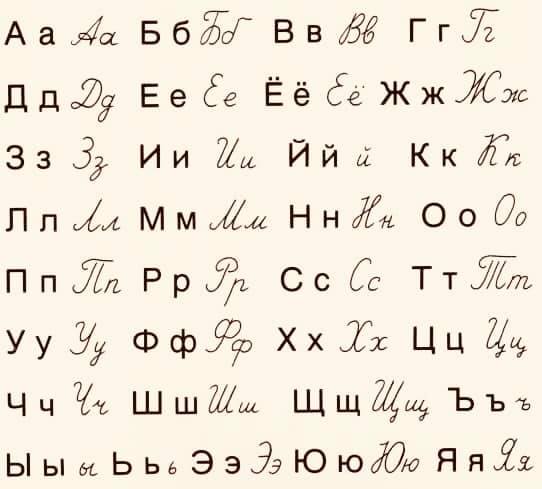 А а Аа Б б Бб В в Вв Г г Гг
Д д Дд Е е Ее Ё ё Её Ж ж Жж
З з Зз И и Ии Й й й К к Кк
Л л Лл М м Мм Н н Нн О о Оо
П п Пп Р р Рр С с Сс Т т Тт
У у Уу Ф ф Фф Х х Хх Ц ц Цц
Ч ч Чч Ш ш Шш Щ щ Щщ Ъ ъ ъ
Ы ы ы Ь ь ь Э э Ээ Ю ю Юю Я я Яя